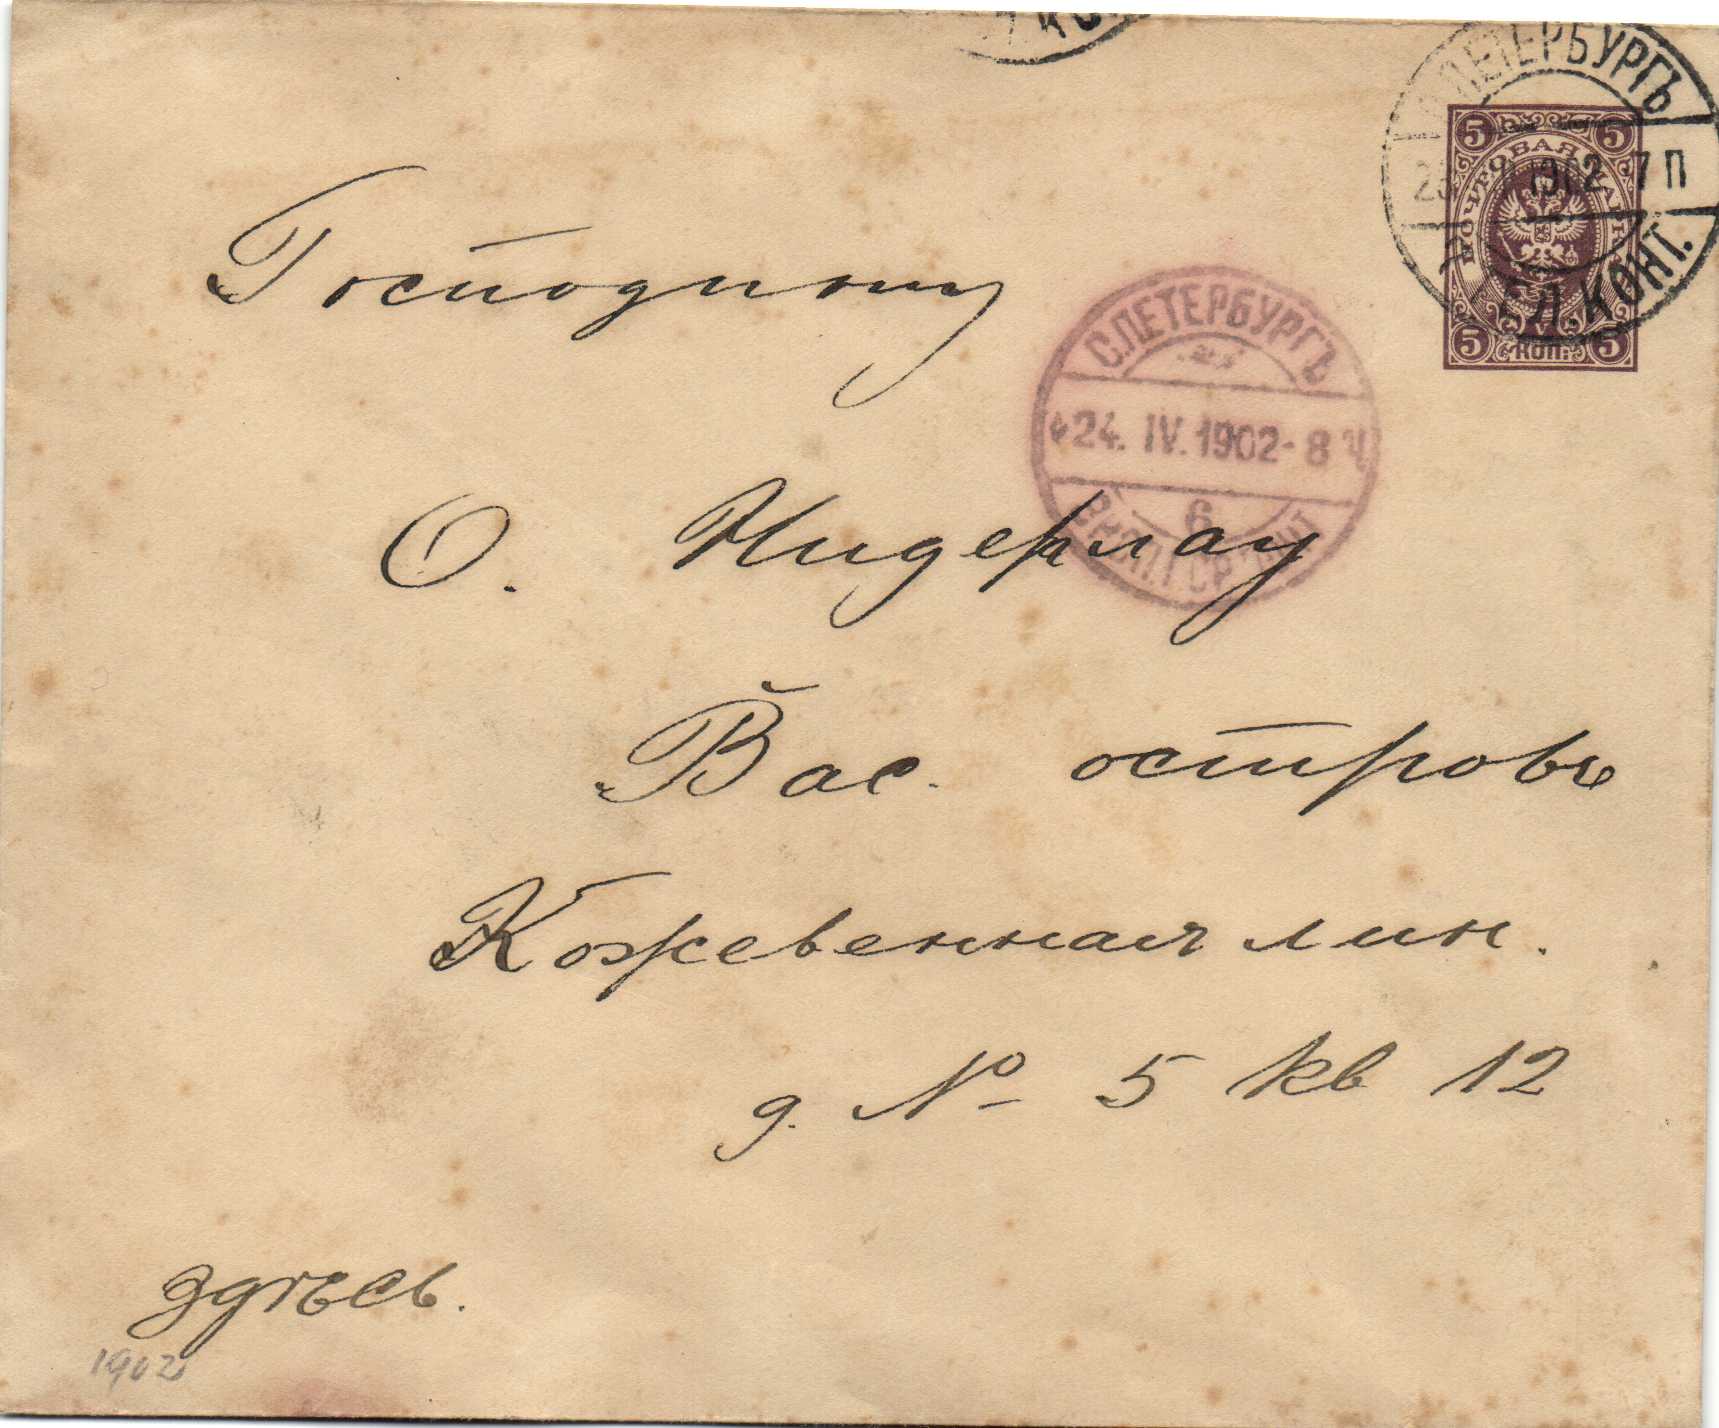 С.ПЕТЕРБУРГЪ
1902 7 П
ГЛ. КОНТ.
5 5
ПОЧТОВАЯ МАРКА
5 КОП. 5
Господину
С.ПЕТЕРБУРГЪ
24. IV. 1902 - 8 Ч
6
О. Нидерлау
Вас. островъ
Кожевенная лин.
д. № 5 кв 12
здѣсь.
1902